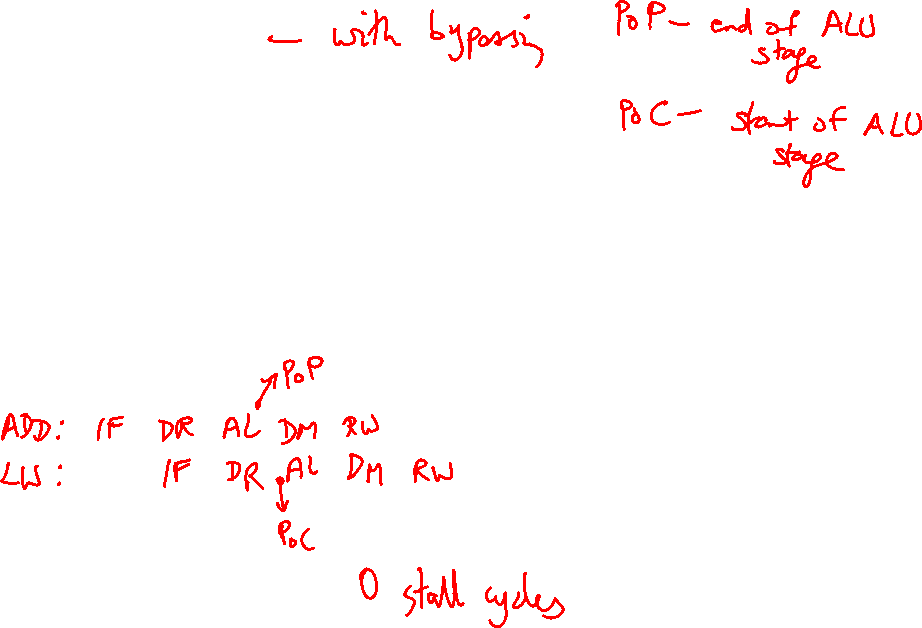 – with bypassing
PoP – end of ALU
stage
PoC – start of ALU
stage
PoP
ADD: IF DR AL DM RW
LW: IF DR AL DM RW
PoC
0 stall cycles